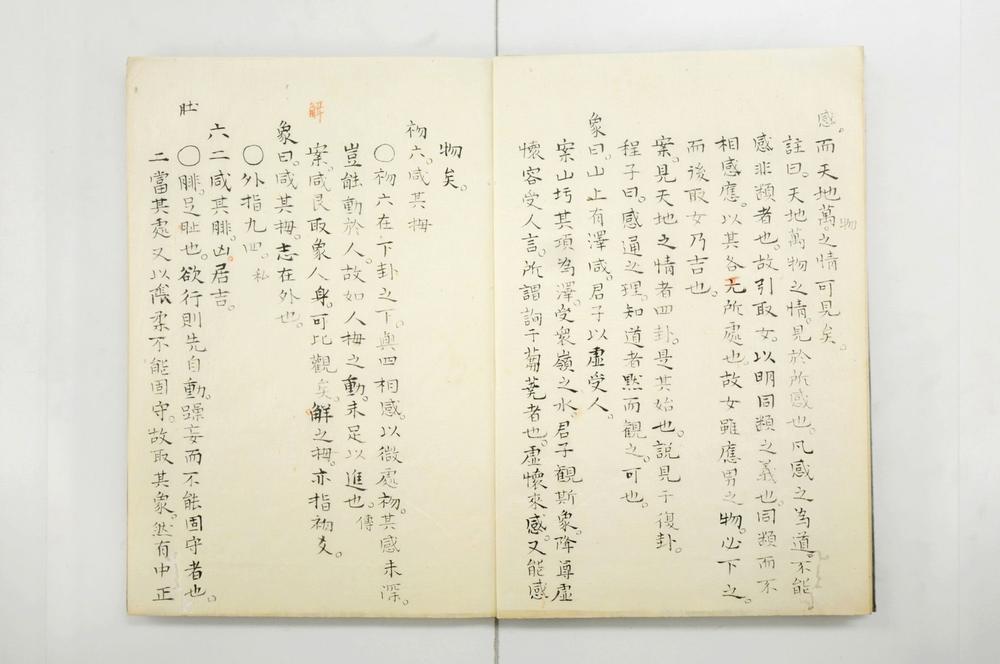 感。而天地萬物之情可見矣。
註曰。天地萬物之情。見於所感也。凡感之為道。不能
感非類者也。故引取女。以明同類之義也。同類而不
相感應。以其各亢所處也。故女雖應男之物。必下之。
而後取女乃吉也。
案。見天地之情者四卦。是其始也。說見于復卦。
程子曰。感通之理。知道者黙而觀之。可也。
象曰。山上有澤咸。君子以虛受人。
案山圬其項為澤。受衆嶺之水。君子觀斯象。降尊虛
懷容受人言。所謂詢于蒭蕘者也。虛懷來感。又能感
物矣。
初六。咸其拇
○初六在下卦之下。與四相感。以微處初。其感未深。
豈能動於人。故如人拇之動。未足以進也。傳
解
案。咸艮取象人身。可比觀矣。解之拇。亦指初爻。
象曰。咸其拇。志在外也。
○外指九四。私
六二咸其腓。凶。居吉。
肚
○腓。足肚也。欲行則先自動。躁妄而不能固守者也。
二當其處。又以陰柔不能固守。故取其象。然有中正